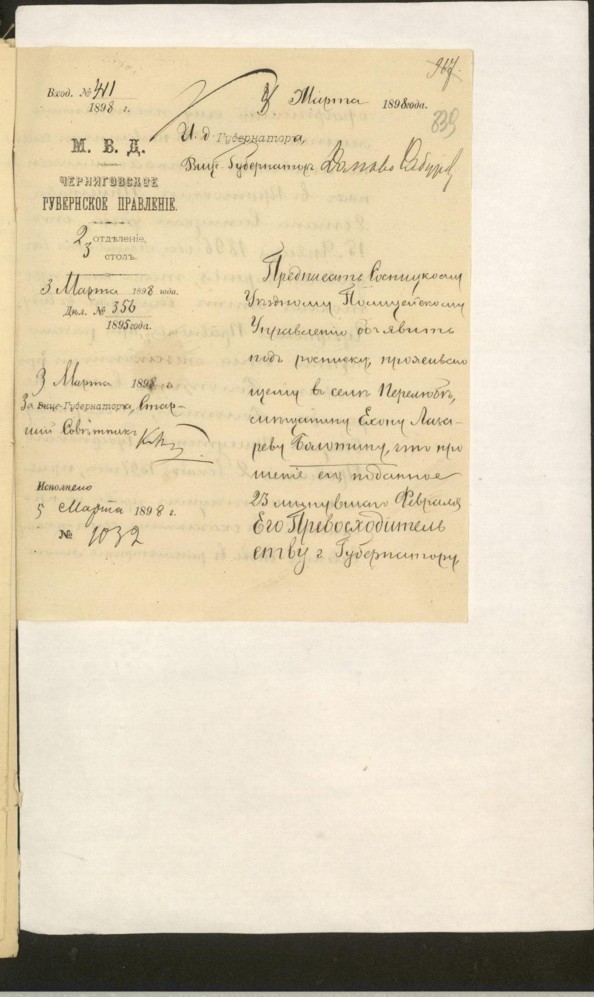 967
839
Вход. № 411
1898 г.
3 Марта 1898 года.
И. д. Губернатора,
Вице-Губернаторъ
М. В. Д.
ЧЕРНИГОВСКОЕ
ГУБЕРНСКОЕ ПРАВЛЕНІЕ.
2 отдѣленіе,
3 столъ.
3 Марта 1898 года.
Дѣл. № 356
1895 года.
3 Марта 1898 г.
За Вице-Губернатора, Стар-
шій Совѣтникъ
Исполнено
5 Марта 1898 г.
№ 1032
Предписать
Уѣздному Полицейскому
Управленію объявить
подъ росписку, проживаю
щему в селѣ Перелюбѣ,
мѣщанину Лаза-
реву Болотину, что про
шеніе его поданное
23 минувшаго Февраля
Его Превосходитель
ству г. Губернатору,